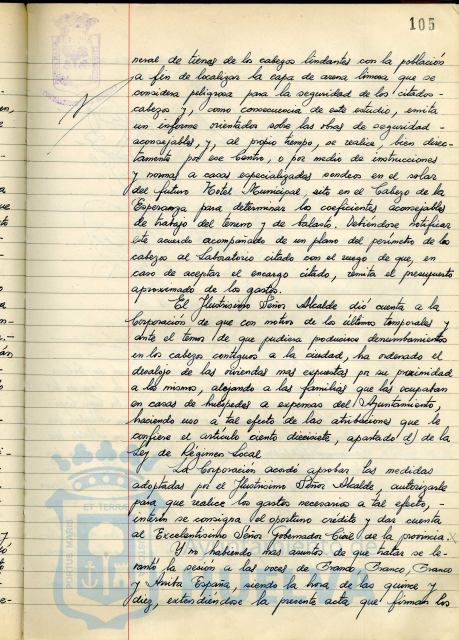 105
neral de tierras de los cabezos lindantes con la población
a fin de localizar la capa de arena limosa que se
considera peligrosa para la seguridad de los citados-
cabezos y, como consecuencia de este estudio, emita
un informe orientador sobre las obras de seguridad-
aconsejables, y, al propio tiempo, se realice, bien direc-
tamente por ese Centro, o por medio de instrucciones
y normas a casas especializadas sondeos en el solar
del futuro Hotel Municipal, sito en el Cabezo de la
Esperanza para determinar los coeficientes aconsejables
de trabajo del terreno y de balasto. Debiéndose notificar
este acuerdo acompañado de un plano del perímetro de los
cabezos al Laboratorio citado con el ruego de que, en
caso de aceptar el encargo citado, remita el presupuesto
aproximado de los gastos.
El Ilustrísimo Señor Alcalde dió cuenta a la
Corporación de que con motivo de los últimos temporales y
ante el temor de que pudiera producirse derrumbamientos
en los cabezos contiguos a la ciudad, ha ordenado el
desalojo de las viviendas mas expuestas por su proximidad
a los mismos, alojando a las familias que las ocupaban
en casas de huéspedes a expensas del Ayuntamiento,
haciendo uso a tal efecto de las atribuciones que le
confiere el artículo ciento diecisiete, apartado d) de la
Ley de Régimen Local.
La Corporación acordó aprobar las medidas
adoptadas por el Ilustrísimo Señor Alcalde, autorizarle
para que realice los gastos necesarios a tal efecto,-
interin se consigna el oportuno crédito y dar cuenta
al Excelentísimo Señor Gobernador Civil de la provincia.
Y no habiendo mas asuntos de que tratar se le-
vantó la sesión a las voces de Franco, Franco, Franco
y Arriba España, siendo la hora de las quince y
diez, extendiéndose la presente acta que firman los